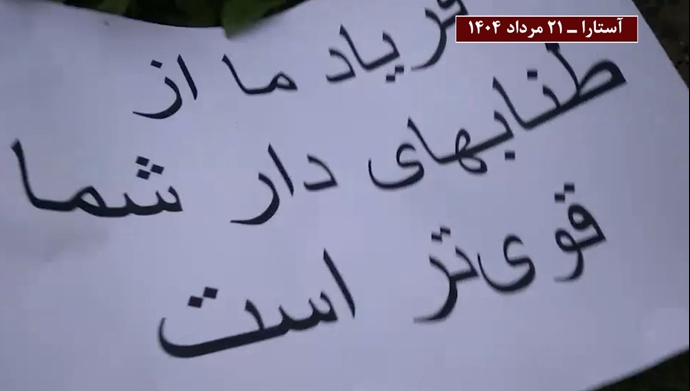 آستارا ـ ۲۱ مرداد ۱۴۰۴
فریاد ما از
طنابهای دار شما
قوی‌تر است